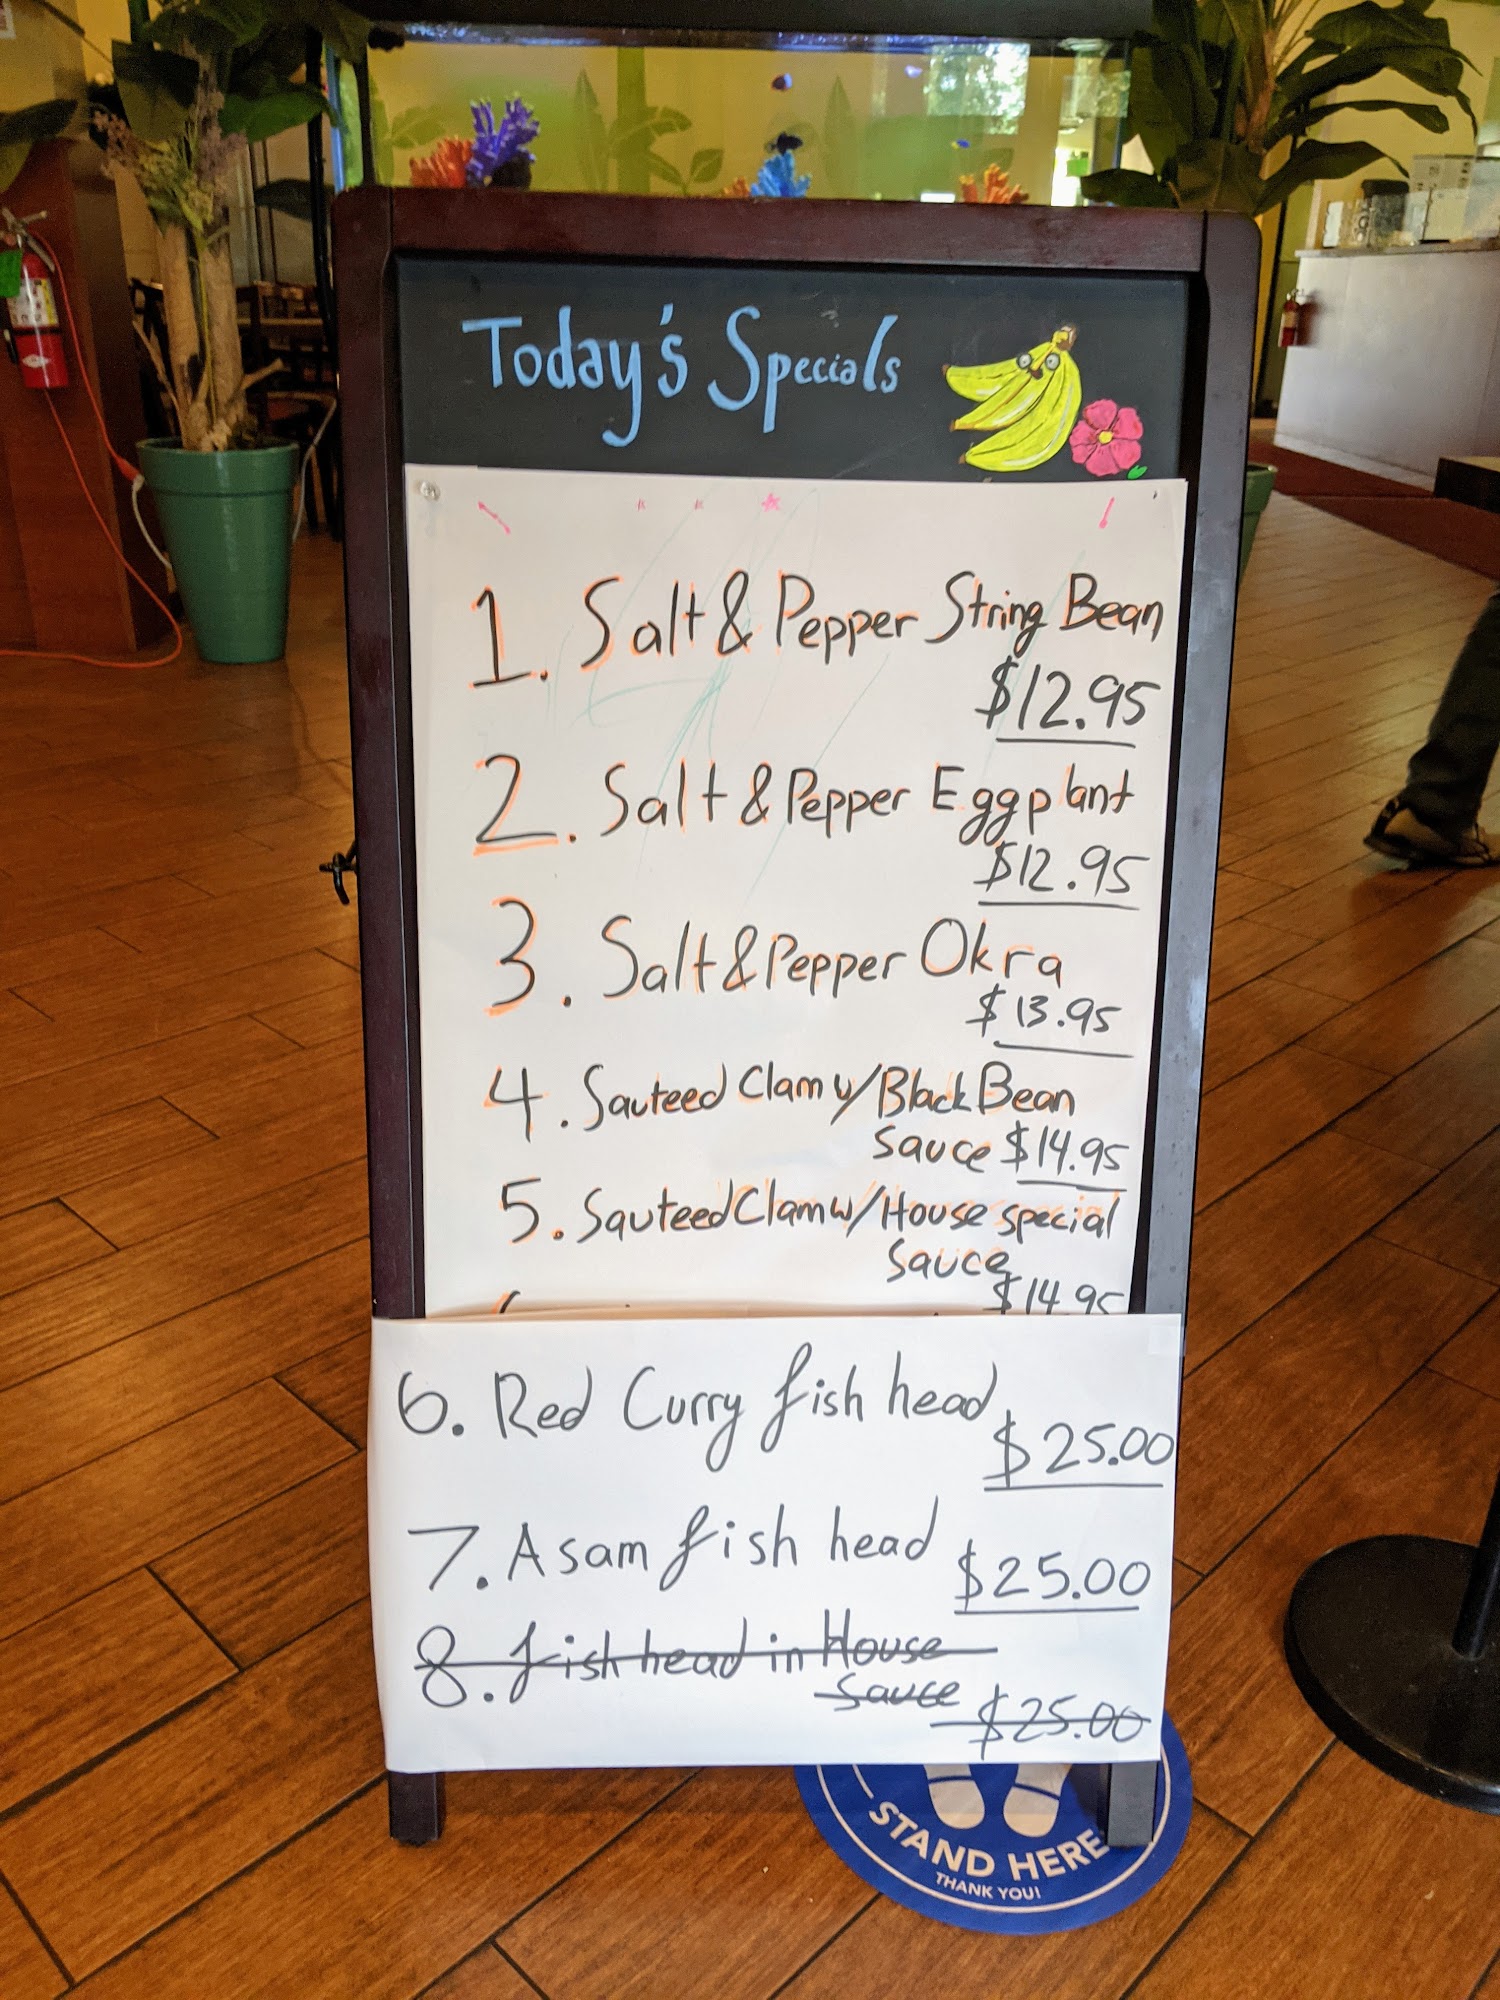 Today's Specials
1. Salt & Pepper String Bean
$12.95
2. Salt & Pepper Eggplant
$12.95
3. Salt & Pepper Okra
$13.95
4. Sauteed Clam w/ Black Bean
Sauce $14.95
5. Sauteed Clam w/ House special
Sauce
$14.95
6. Red Curry fish head
$25.00
7. Asam fish head
$25.00
8. fish head in House
Sauce
$25.00
STAND HERE
THANK YOU!